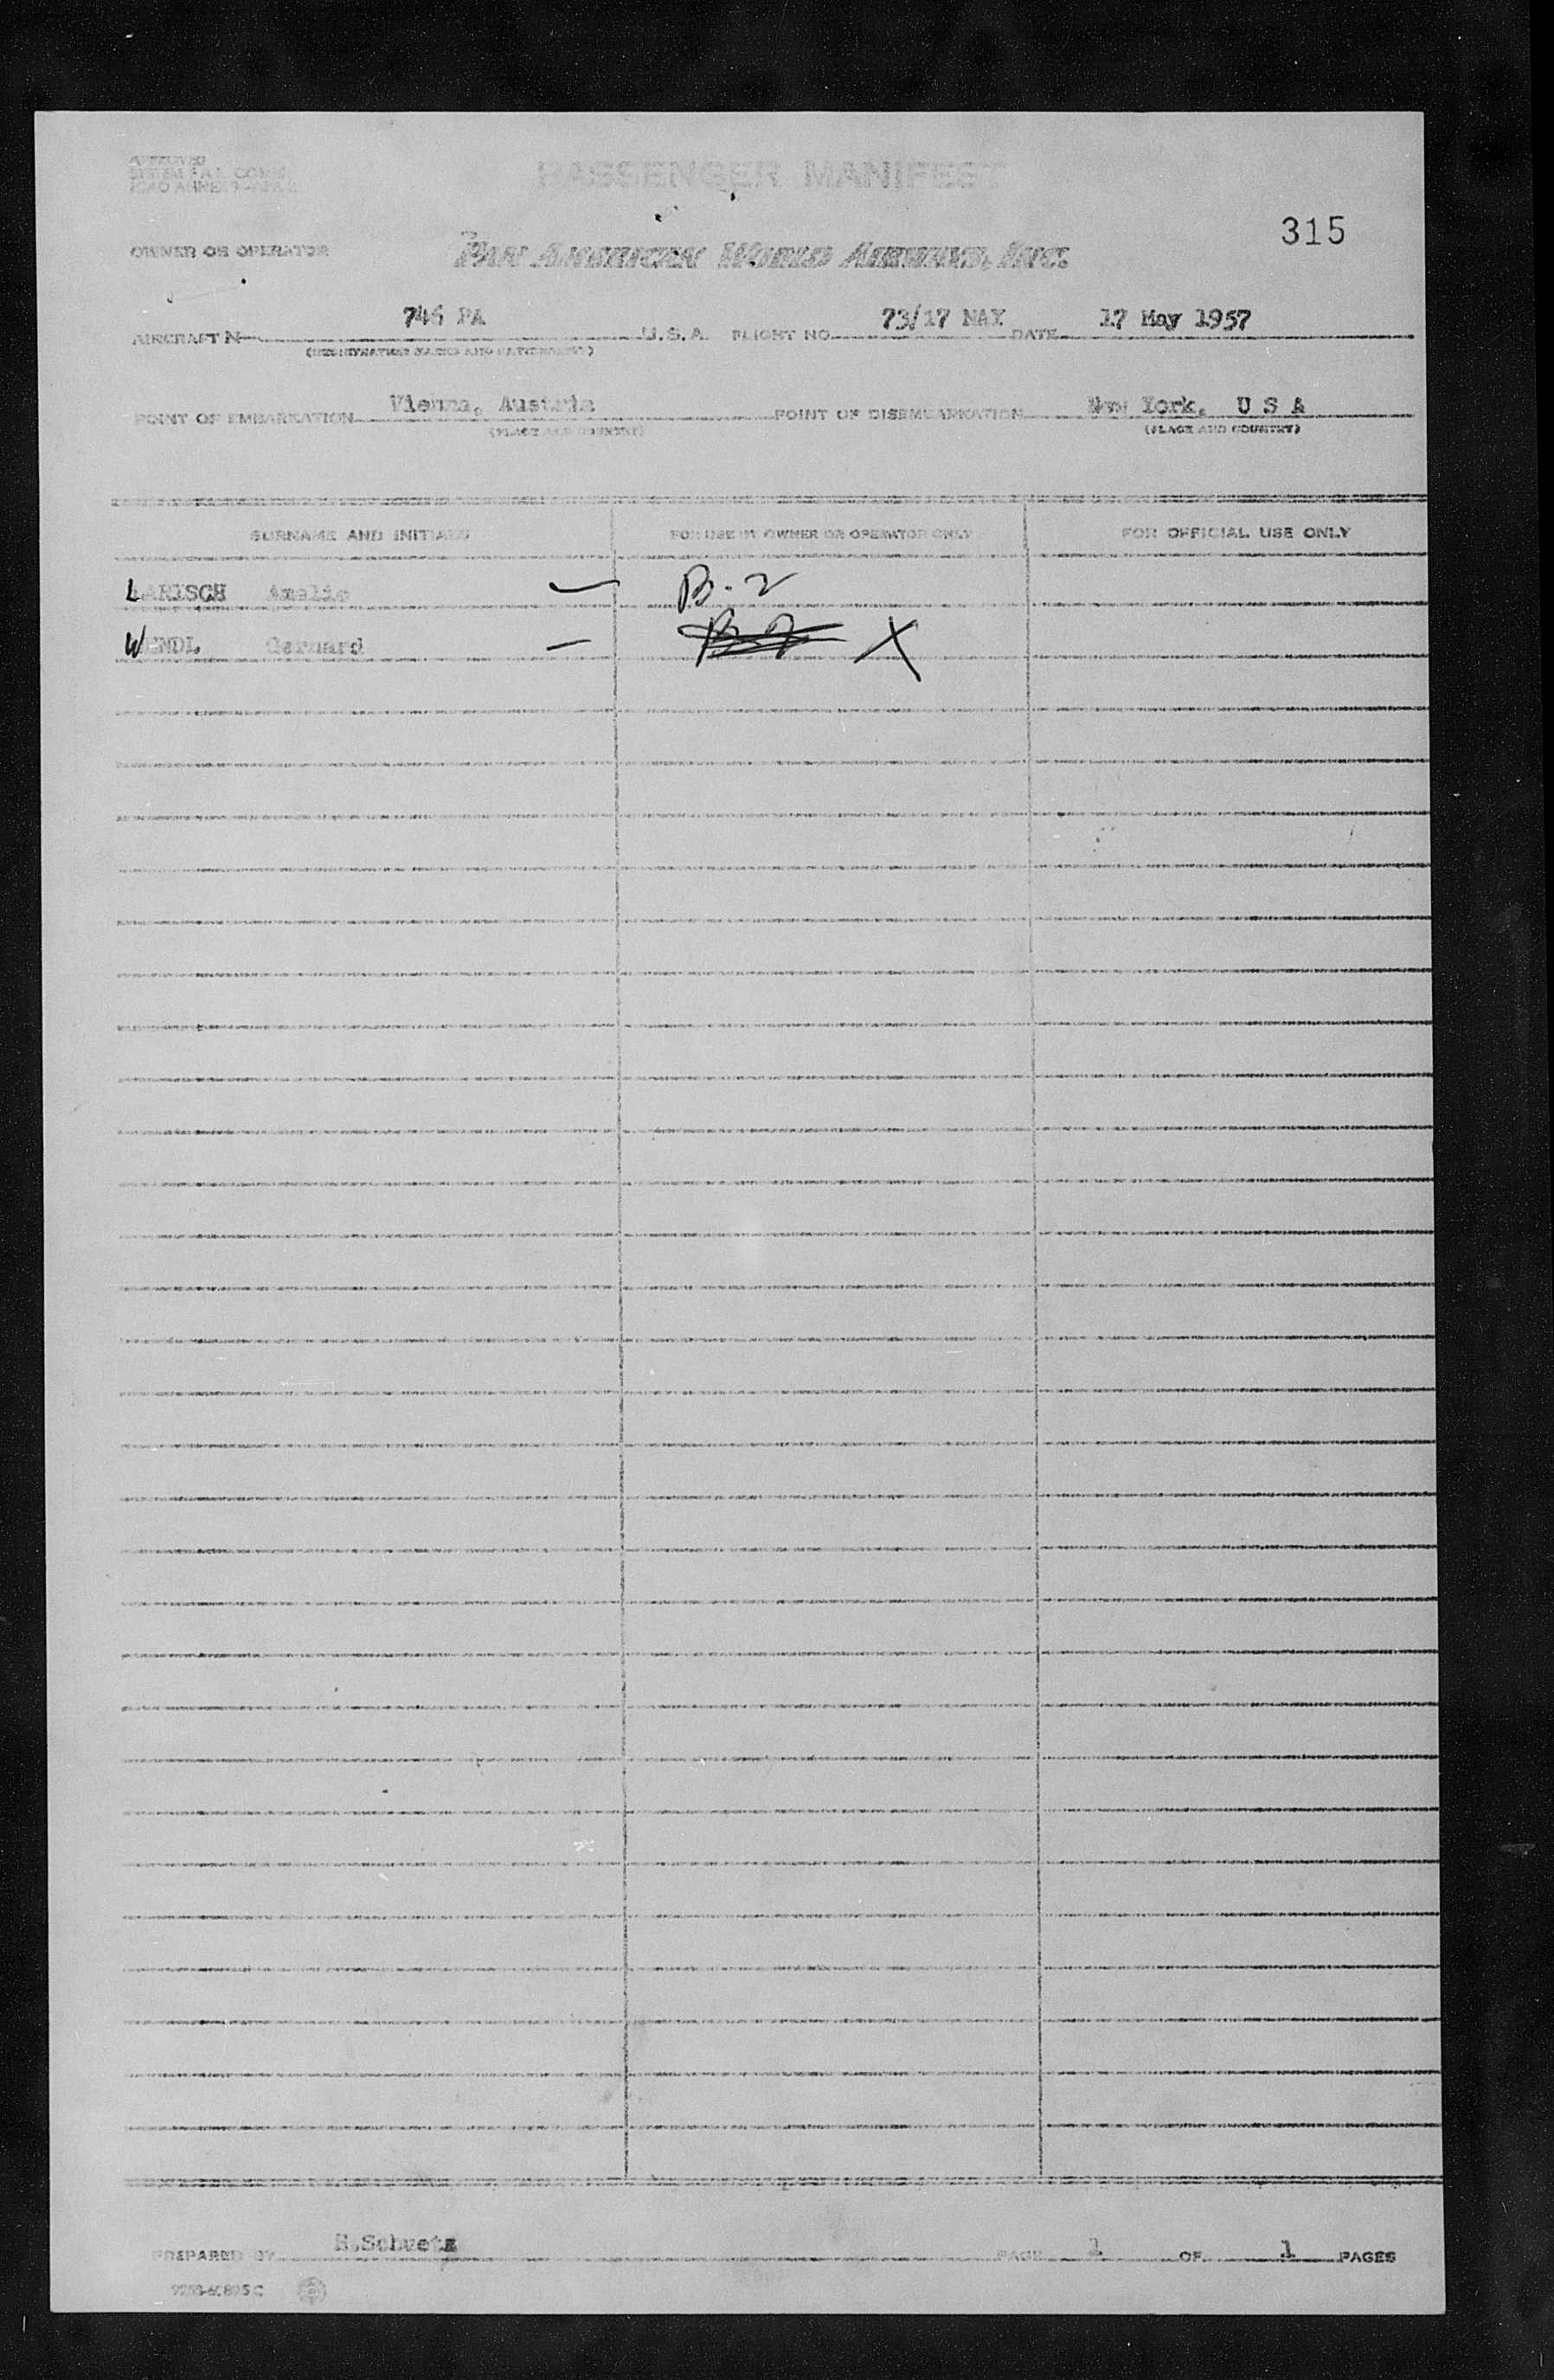 APPROVED
PASSENGER MANIFEST
315
OWNER OR OPERATOR PAN AMERICAN WORLD AIRWAYS, INC.
AIRCRAFT N 746 PA U.S.A. FLIGHT NO. 73/17 MAY DATE 17 May 1957
(REGISTRATION MARKS AND NATIONALITY)
POINT OF EMBARKATION Vienna, Austria POINT OF DISEMBARKATION New York, U S A
(PLACE AND COUNTRY) (PLACE AND COUNTRY)
SURNAME AND INITIALS FOR USE BY OWNER OR OPERATOR ONLY FOR OFFICIAL USE ONLY
LARISCH Amalie — B-2
WENDL — B-2 X
PREPARED BY H.Schuetz PAGE 1 OF 1 PAGES